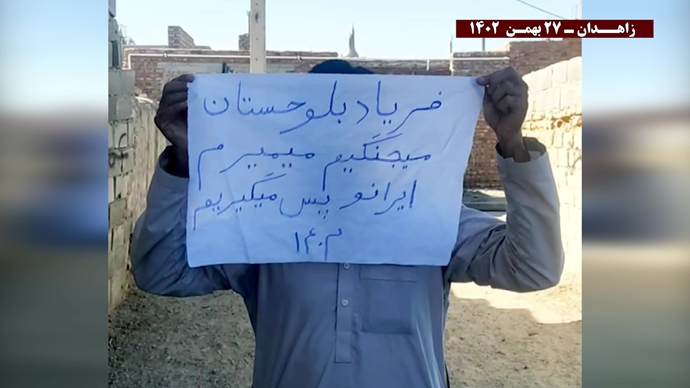 زاهـدان ـ ۲۷ بهمـن ۱۴۰۲
فریاد بلوحستان
میجَنَگیم میمیرم
ایرانو پس میگیریم
۱۴۰۲